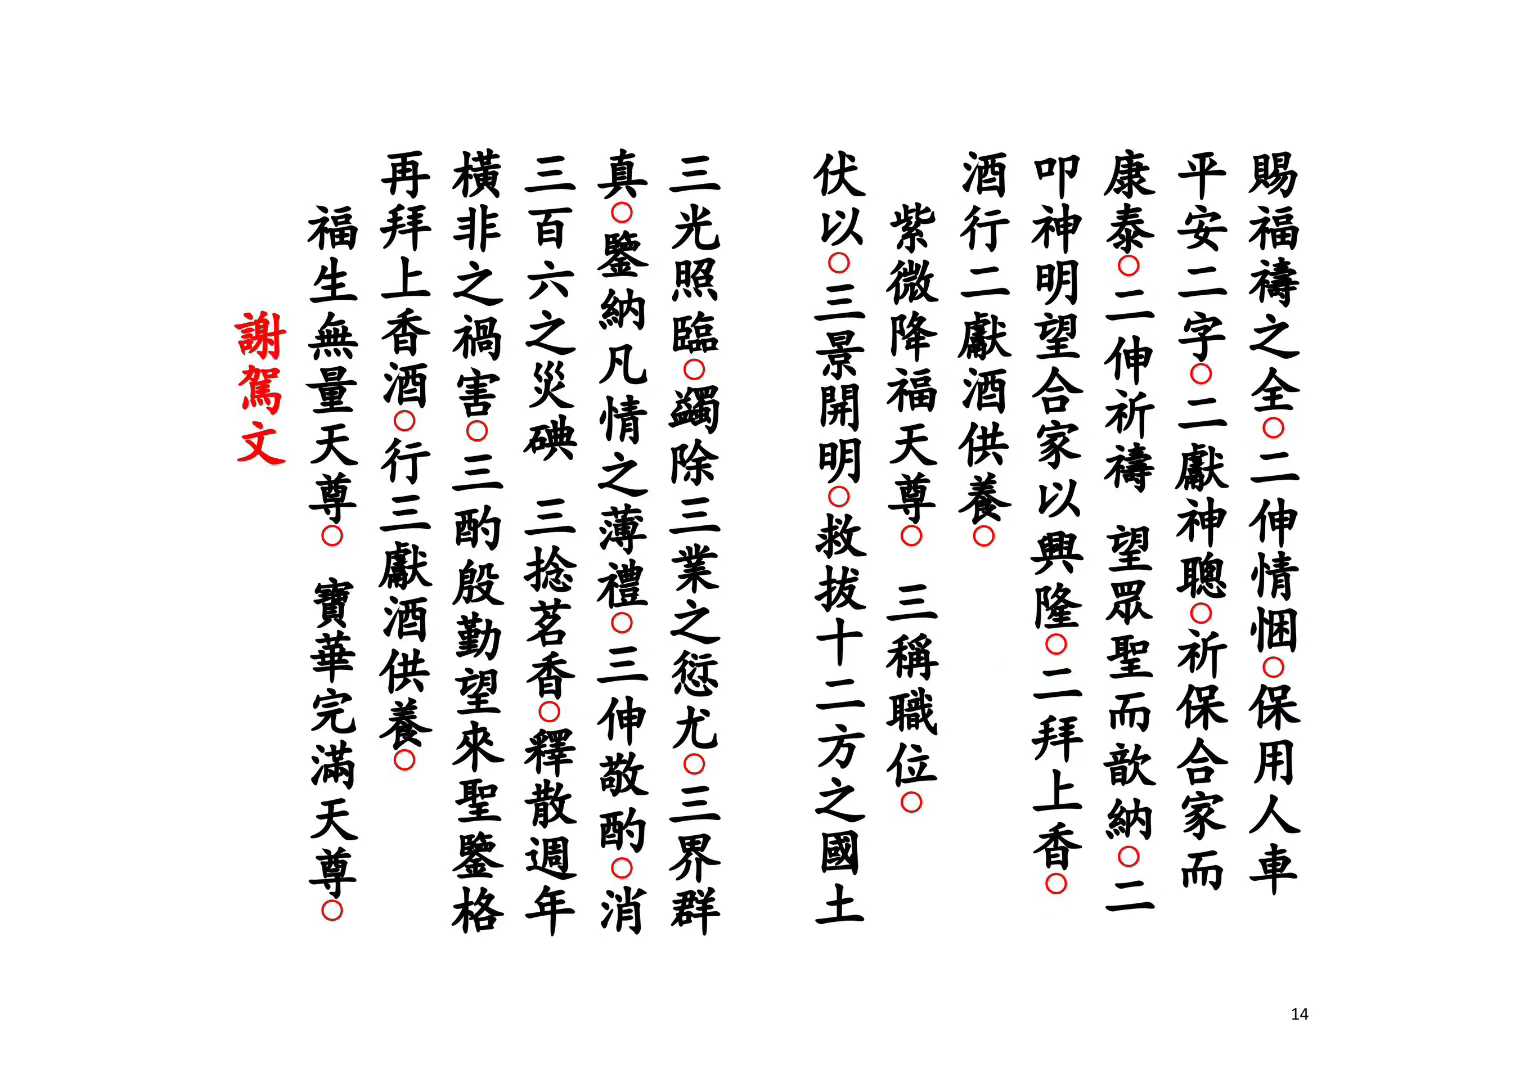 賜福禱之全○二伸情悃○保用人車
平安二字○二獻神聰○祈保合家而
康泰○二伸祈禱 望眾聖而歆納○二
叩神明望合家以興隆○二拜上香○
酒行二獻酒供養○
紫微降福天尊○ 三稱職位○
伏以○三景開明○救拔十二方之國土
三光照臨○蠲除三業之愆尤○三界群
真○鑒納凡情之薄禮○三伸敬酌○消
三百六之災碘 三捻茗香○釋散週年
橫非之禍害○三酌殷勤望來聖鑒格
再拜上香酒○行三獻酒供養○
福生無量天尊○ 寶華完滿天尊○
謝駕文
14